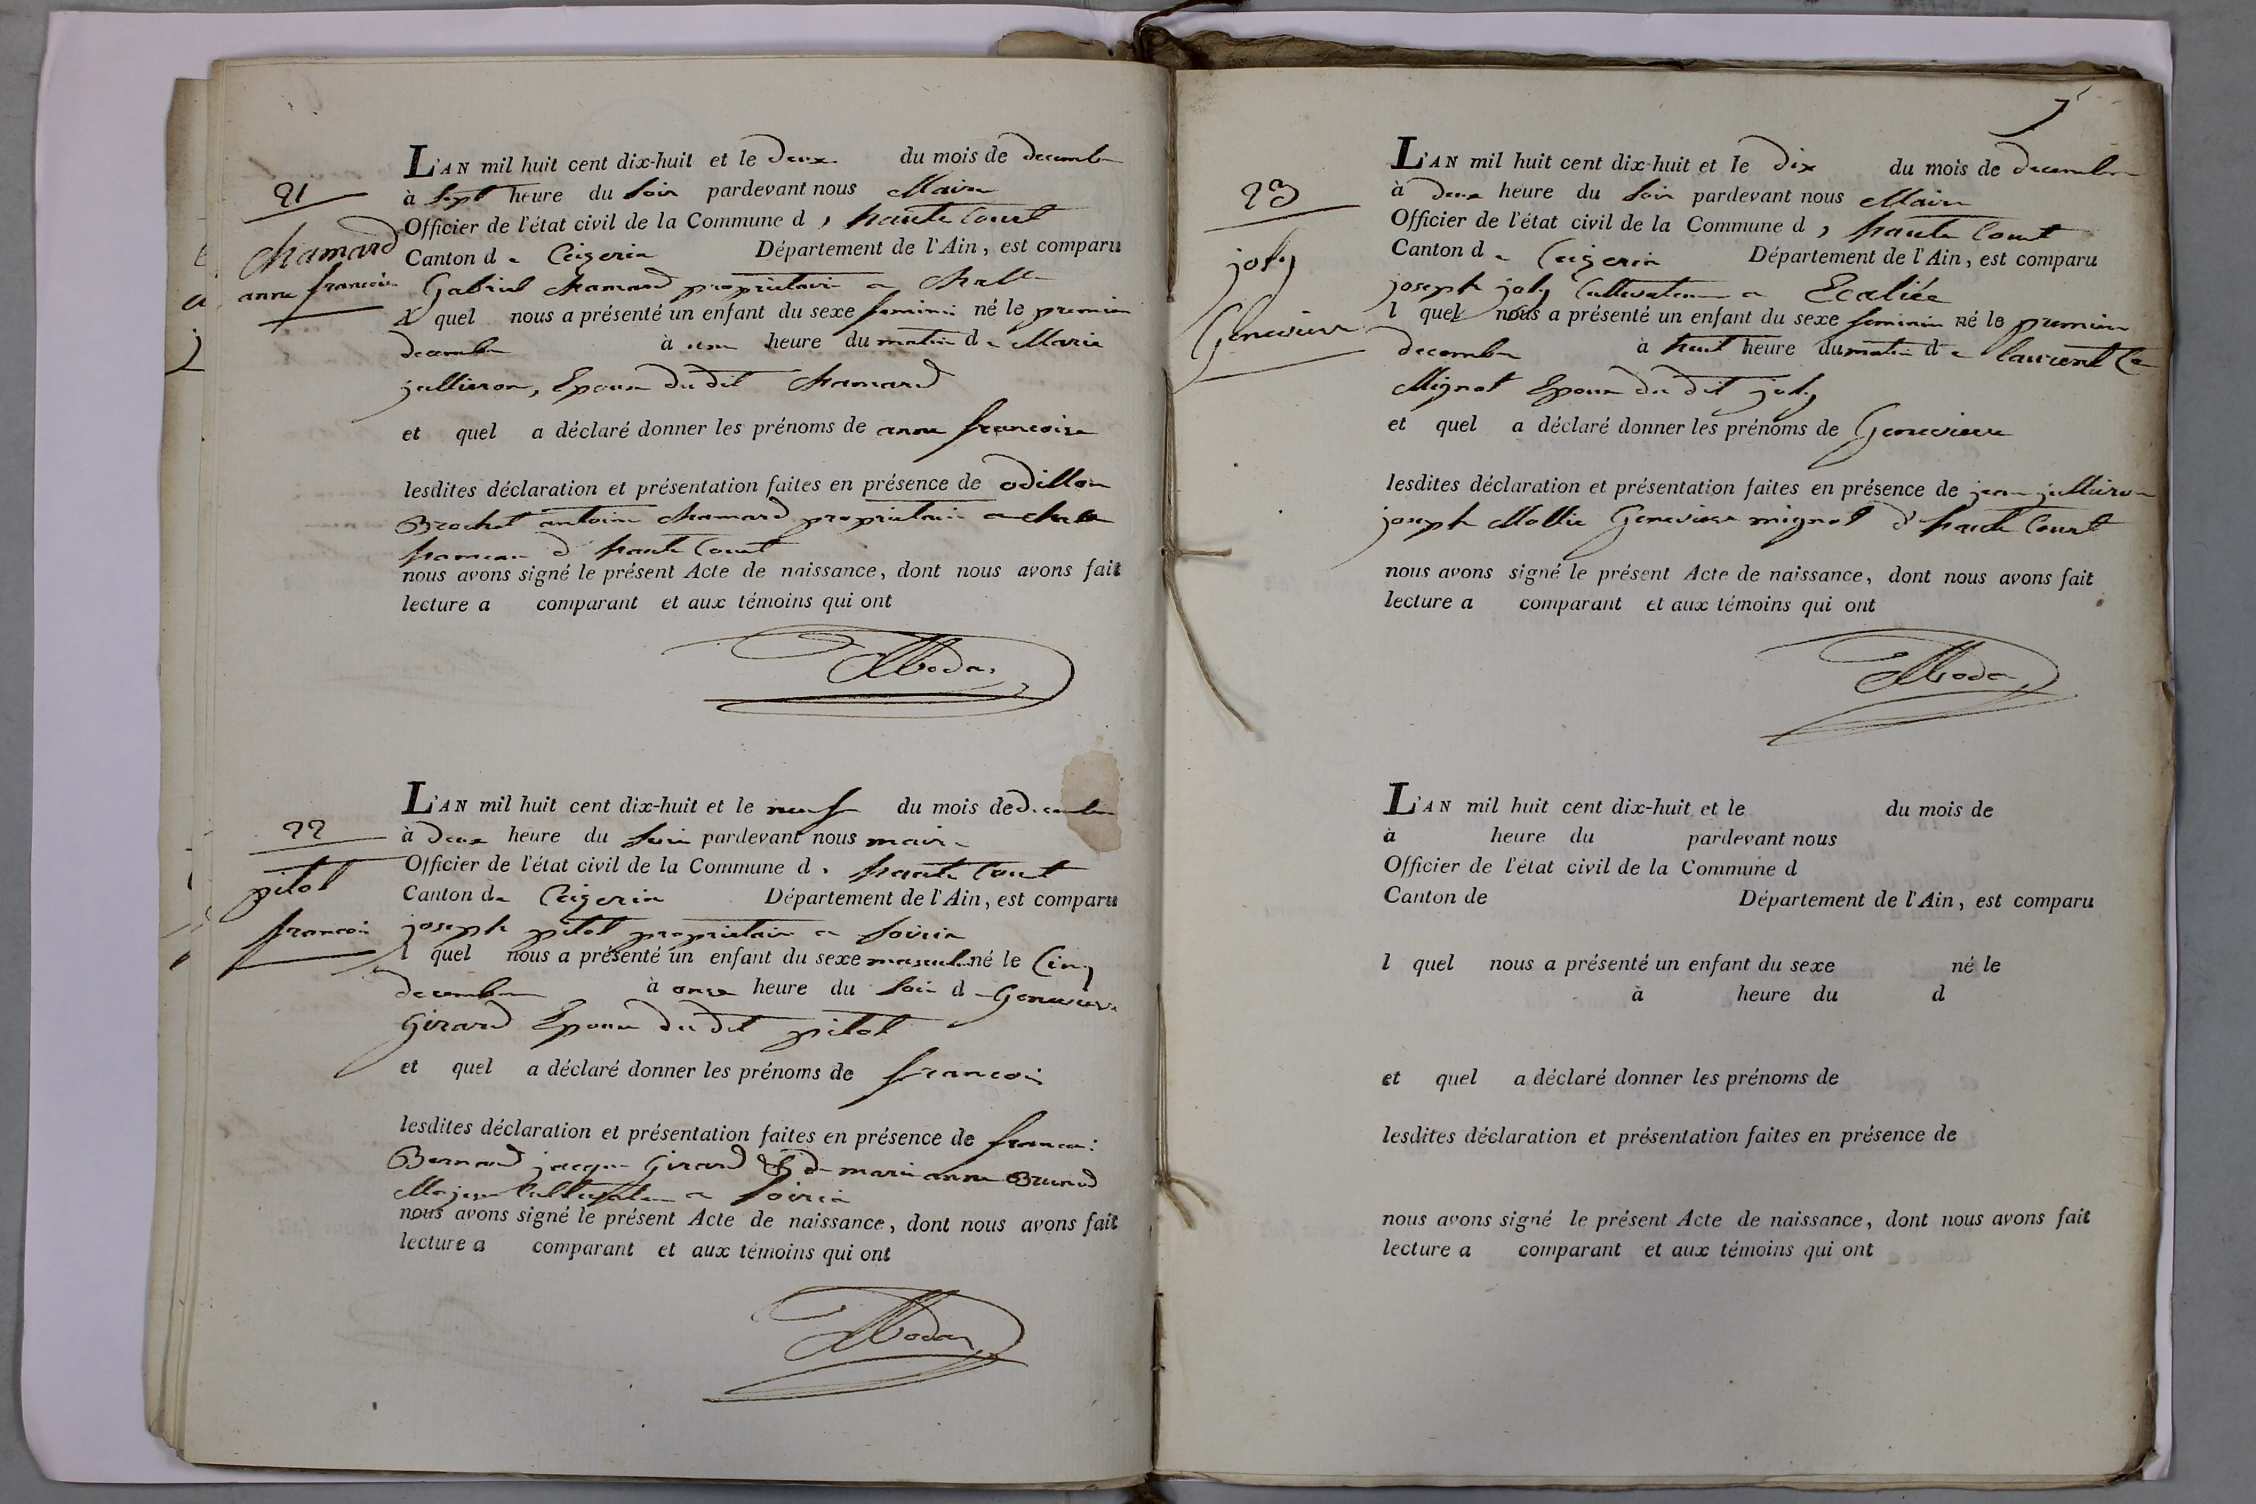 21
Chamard
anne françoise
L'AN mil huit cent dix-huit et le deux du mois de decembre
à sept heure du soir pardevant nous Maire
Officier de l'état civil de la Commune d' haute Court
Canton de Ceizeria Département de l'Ain, est comparu
Gabriel Chamard proprietaire a Challe
l quel nous a présenté un enfant du sexe feminin né le premier
decembre à une heure du matin de Marie
jullieron, Epouse du dit Chamard
et quel a déclaré donner les prénoms de anne françoise
lesdites déclaration et présentation faites en présence de odillon
Brochet antoine Chamard proprietaire a
hameau d' haute Court
nous avons signé le présent Acte de naissance, dont nous avons fait
lecture a comparant et aux témoins qui ont
22
pitol
francois
L'AN mil huit cent dix-huit et le neuf du mois de decembre
à deux heure du soir pardevant nous maire
Officier de l'état civil de la Commune d' haute Court
Canton de Ceizeria Département de l'Ain, est comparu
joseph pitol proprietaire a Soiria
l quel nous a présenté un enfant du sexe masculin né le Cinq
decembre à onze heure du soir de Genevieve
Girard Epouse du dit pitol
et quel a déclaré donner les prénoms de francois
lesdites déclaration et présentation faites en présence de francois
Bernard jacque Girard marie anne
cultivateur a Soiria
nous avons signé le présent Acte de naissance, dont nous avons fait
lecture a comparant et aux témoins qui ont
7
23
joly
Genevieve
L'AN mil huit cent dix-huit et le dix du mois de decembre
à deux heure du soir pardevant nous Maire
Officier de l'état civil de la Commune d' haute Court
Canton de Ceizeria Département de l'Ain, est comparu
joseph joly Cultivateur a
l quel nous a présenté un enfant du sexe feminin né le premier
decembre à huit heure du matin de laurence
Mignot Epouse du dit joly
et quel a déclaré donner les prénoms de Genevieve
lesdites déclaration et présentation faites en présence de jean jullieron
joseph Mollie Genevieve mignot d' haute Court
nous avons signé le présent Acte de naissance, dont nous avons fait
lecture a comparant et aux témoins qui ont
L'AN mil huit cent dix-huit et le du mois de
à heure du pardevant nous
Officier de l'état civil de la Commune d
Canton de Département de l'Ain, est comparu
l quel nous a présenté un enfant du sexe né le
à heure du d
et quel a déclaré donner les prénoms de
lesdites déclaration et présentation faites en présence de
nous avons signé le présent Acte de naissance, dont nous avons fait
lecture a comparant et aux témoins qui ont